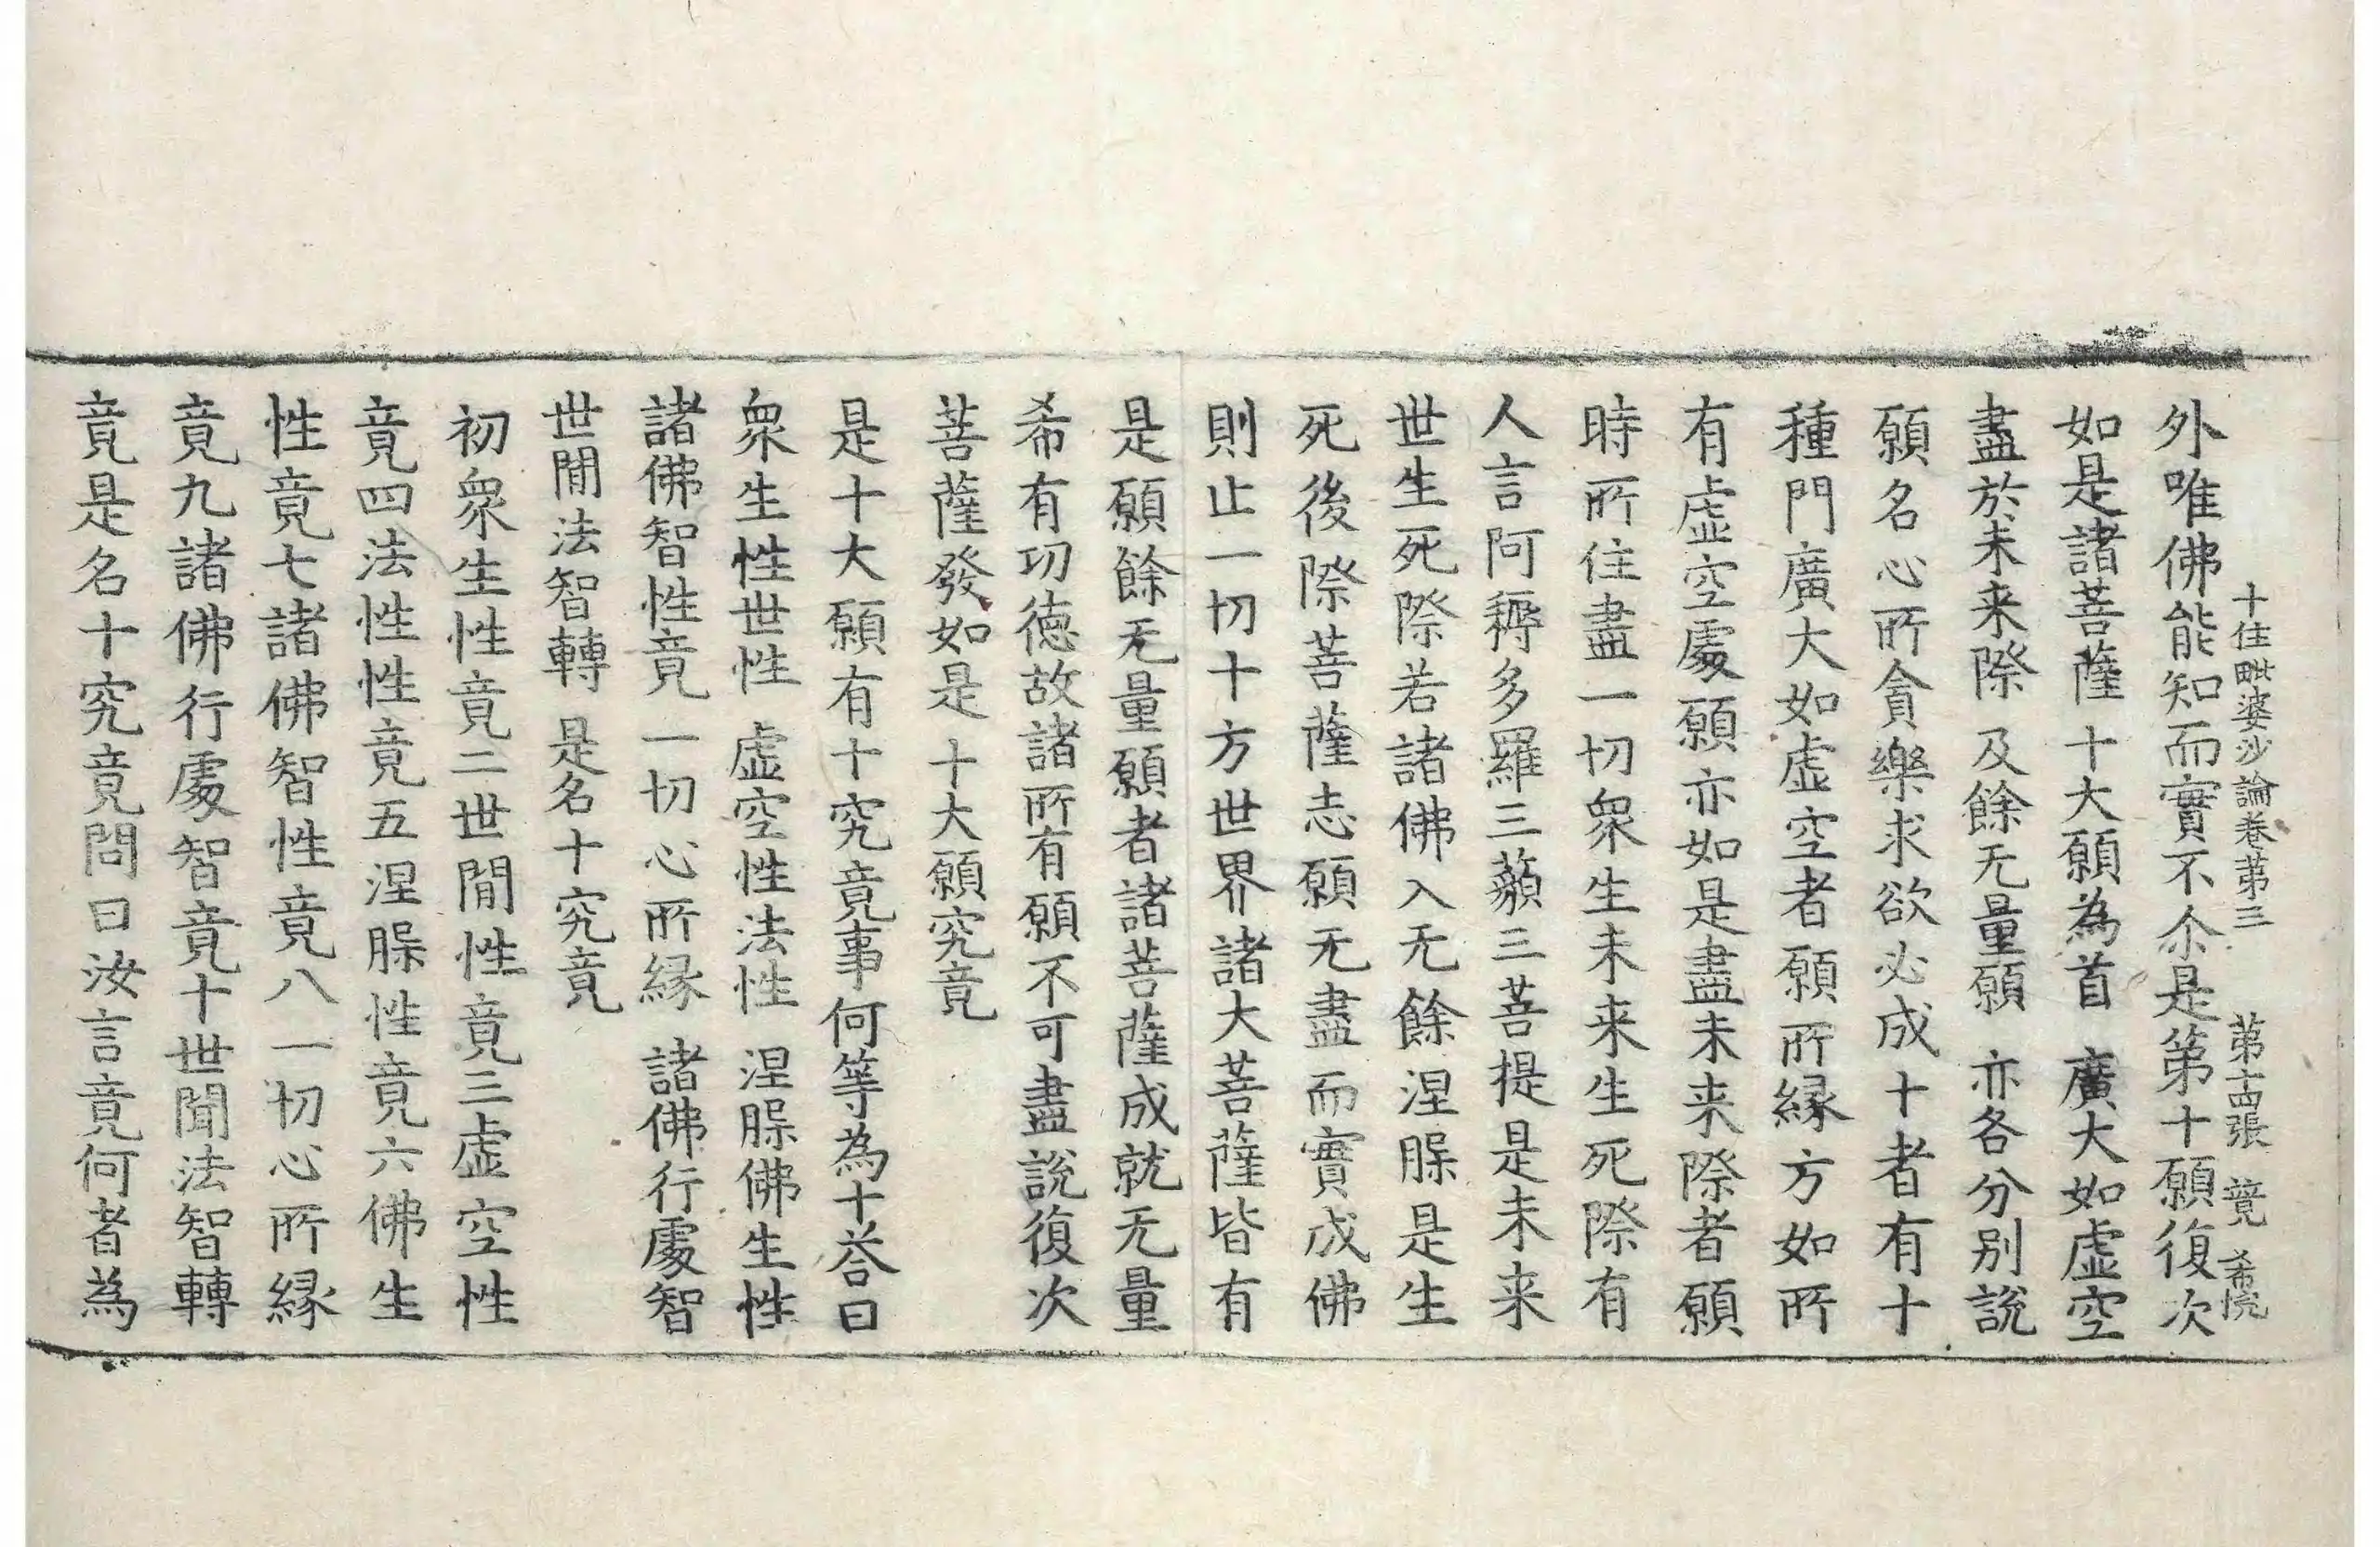 十住毗婆沙論卷苐三 苐十四張 竟 希院
外唯佛能知而實不尒是第十願復次
如是諸菩薩 十大願為首 廣大如虚空
盡於未来際 及餘无量願 亦各分別說
願名心所貪樂求欲必成十者有十
種門廣大如虚空者願所縁方如所
有虚空處願亦如是盡未来際者願
時所住盡一切衆生未来生死際有
人言阿耨多羅三藐三菩提是未来
世生死際若諸佛入无餘涅槃是生
死後際菩薩志願无盡而實成佛
則止一切十方世界諸大菩薩皆有
是願餘无量願者諸菩薩成就无量
希有功德故諸所有願不可盡說復次
菩薩發如是 十大願究竟
是十大願有十究竟事何等為十荅曰
衆生性世性 虚空性法性 涅槃佛生性
諸佛智性竟 一切心所縁 諸佛行處智
世間法智轉 是名十究竟
初衆生性竟二世間性竟三虚空性
竟四法性性竟五涅槃性竟六佛生
性竟七諸佛智性竟八一切心所縁
竟九諸佛行處智竟十世聞法智轉
竟是名十究竟問曰汝言竟何者為